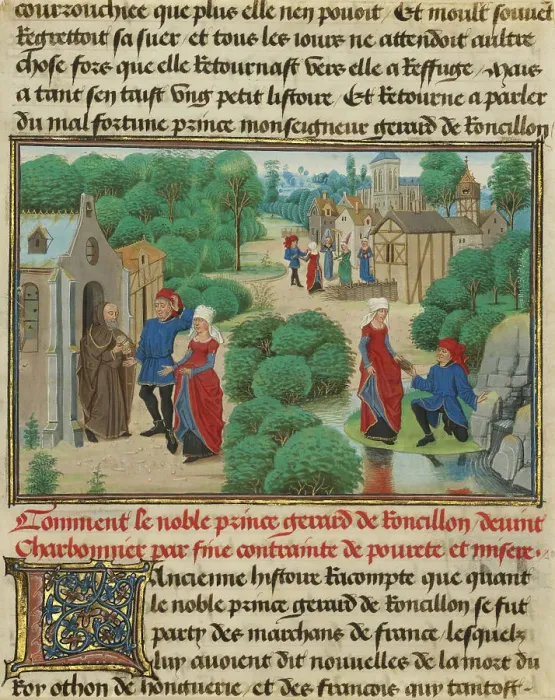 courrouchiee que plus elle nen pouoit / Et moult souuent
Regrettoit sa suer / et tous les iours ne attendoit aultre
chose fors que elle Retournast vers elle a Reffuge / Mais
a tant sen taist vng petit listoire / Et Retourne a parler
du mal fortune prince monseigneur gerard de Roncillon
Comment le noble prince gerard de Roncillon / deuint
Charbonnier par fine contrainte de pourete et misere .
LAncienne histoire Racompte que quant
le noble prince gerard de Roncillon se fut
party des marchans de france / lesquelz
luy auoient dit nouuelles de la mort du
Roy othon de honguerie / et des francois quy tantost -